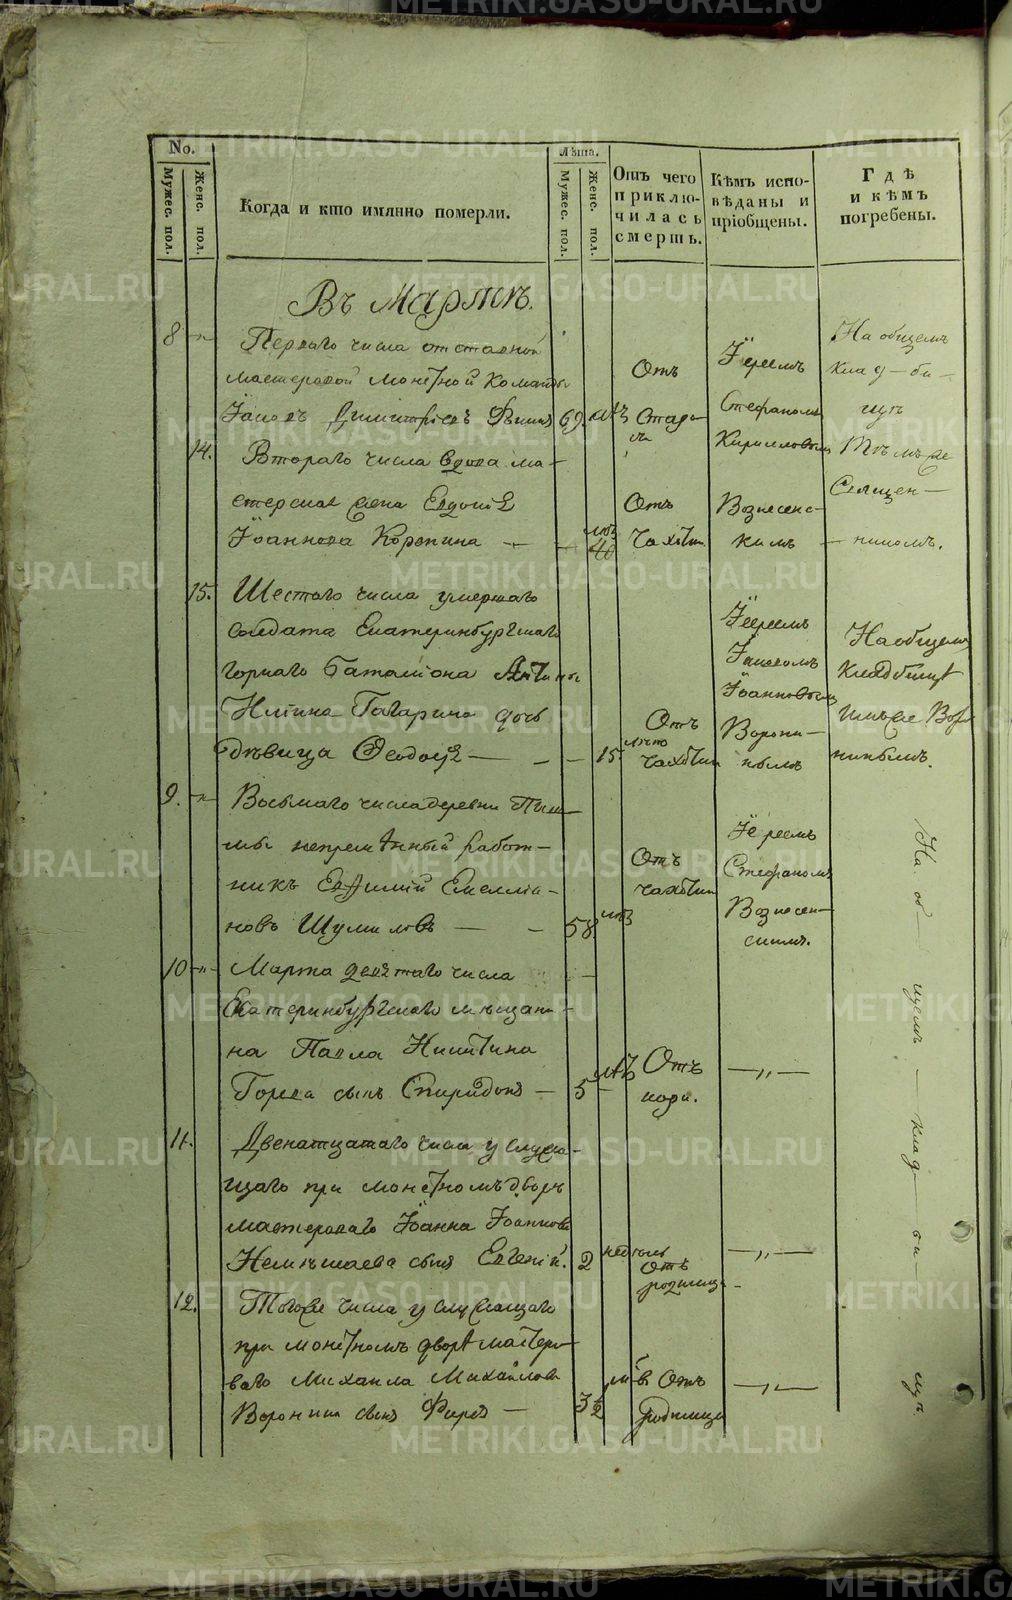 No.
Мужес. пол.
Женс. пол.
Когда и кто имянно померли.
Лѣта.
Мужес. пол.
Женс. пол.
Отъ чего
приклю-
чилась
смерть.
Кѣмъ испо-
вѣданы и
пріобщены.
Гдѣ
и кѣмъ
погребены.
Въ Мартѣ.
8
Перваго числа отставной
мастеровой монетной команды
Димитріевъ 69. лѣтъ
Отъ
Старо
сти
Іереемъ
Стефаномъ
Кирилловымъ
На общемъ
клад-би-
щѣ
14.
Втораго числа вдова ма-
стерская жена Евдокія
Іоаннова
40
Отъ
чахотки
Вознесенс-
кимъ
Тѣмъ же
Священ-
никомъ.
15.
Шестаго числа умершаго
солдата Екатеринбургскаго
горнаго баталіона
Никитина Гагарина дочь
дѣвица Ѳеодосія 15.
Отъ
чахотки
Іереемъ
Іаковомъ
Іоанновымъ
Ворони-
нымъ
На общемъ
кладбищѣ
имъ же Воро
нинымъ.
9.
Восьмаго числа деревни Пыш-
мы непремѣнный работ-
никъ Евфимій Емеліа-
новъ Шумиловъ 58 лѣтъ
Отъ
чахотки
Іереемъ
Стефаномъ
Вознесен-
скимъ.
На об-щемъ-клад-би-щѣ
10
Марта девятаго числа
Екатеринбургскаго мѣщани-
на Павла Никитина
сынъ Спиридонъ 5 лѣтъ
Отъ
кори.
11.
Двенатцатаго числа у служа-
щаго при монетномъ дворѣ
мастероваго Іоанна Іоаннова
сынъ Евгеній. 2 недѣль
Отъ
родимца
12.
Тогоже числа у служащаго
при монетномъ дворѣ мастеро-
ваго Михаила Михайлова
Воронина сынъ
Отъ
родимца
METRIKI.GASO-URAL.RU